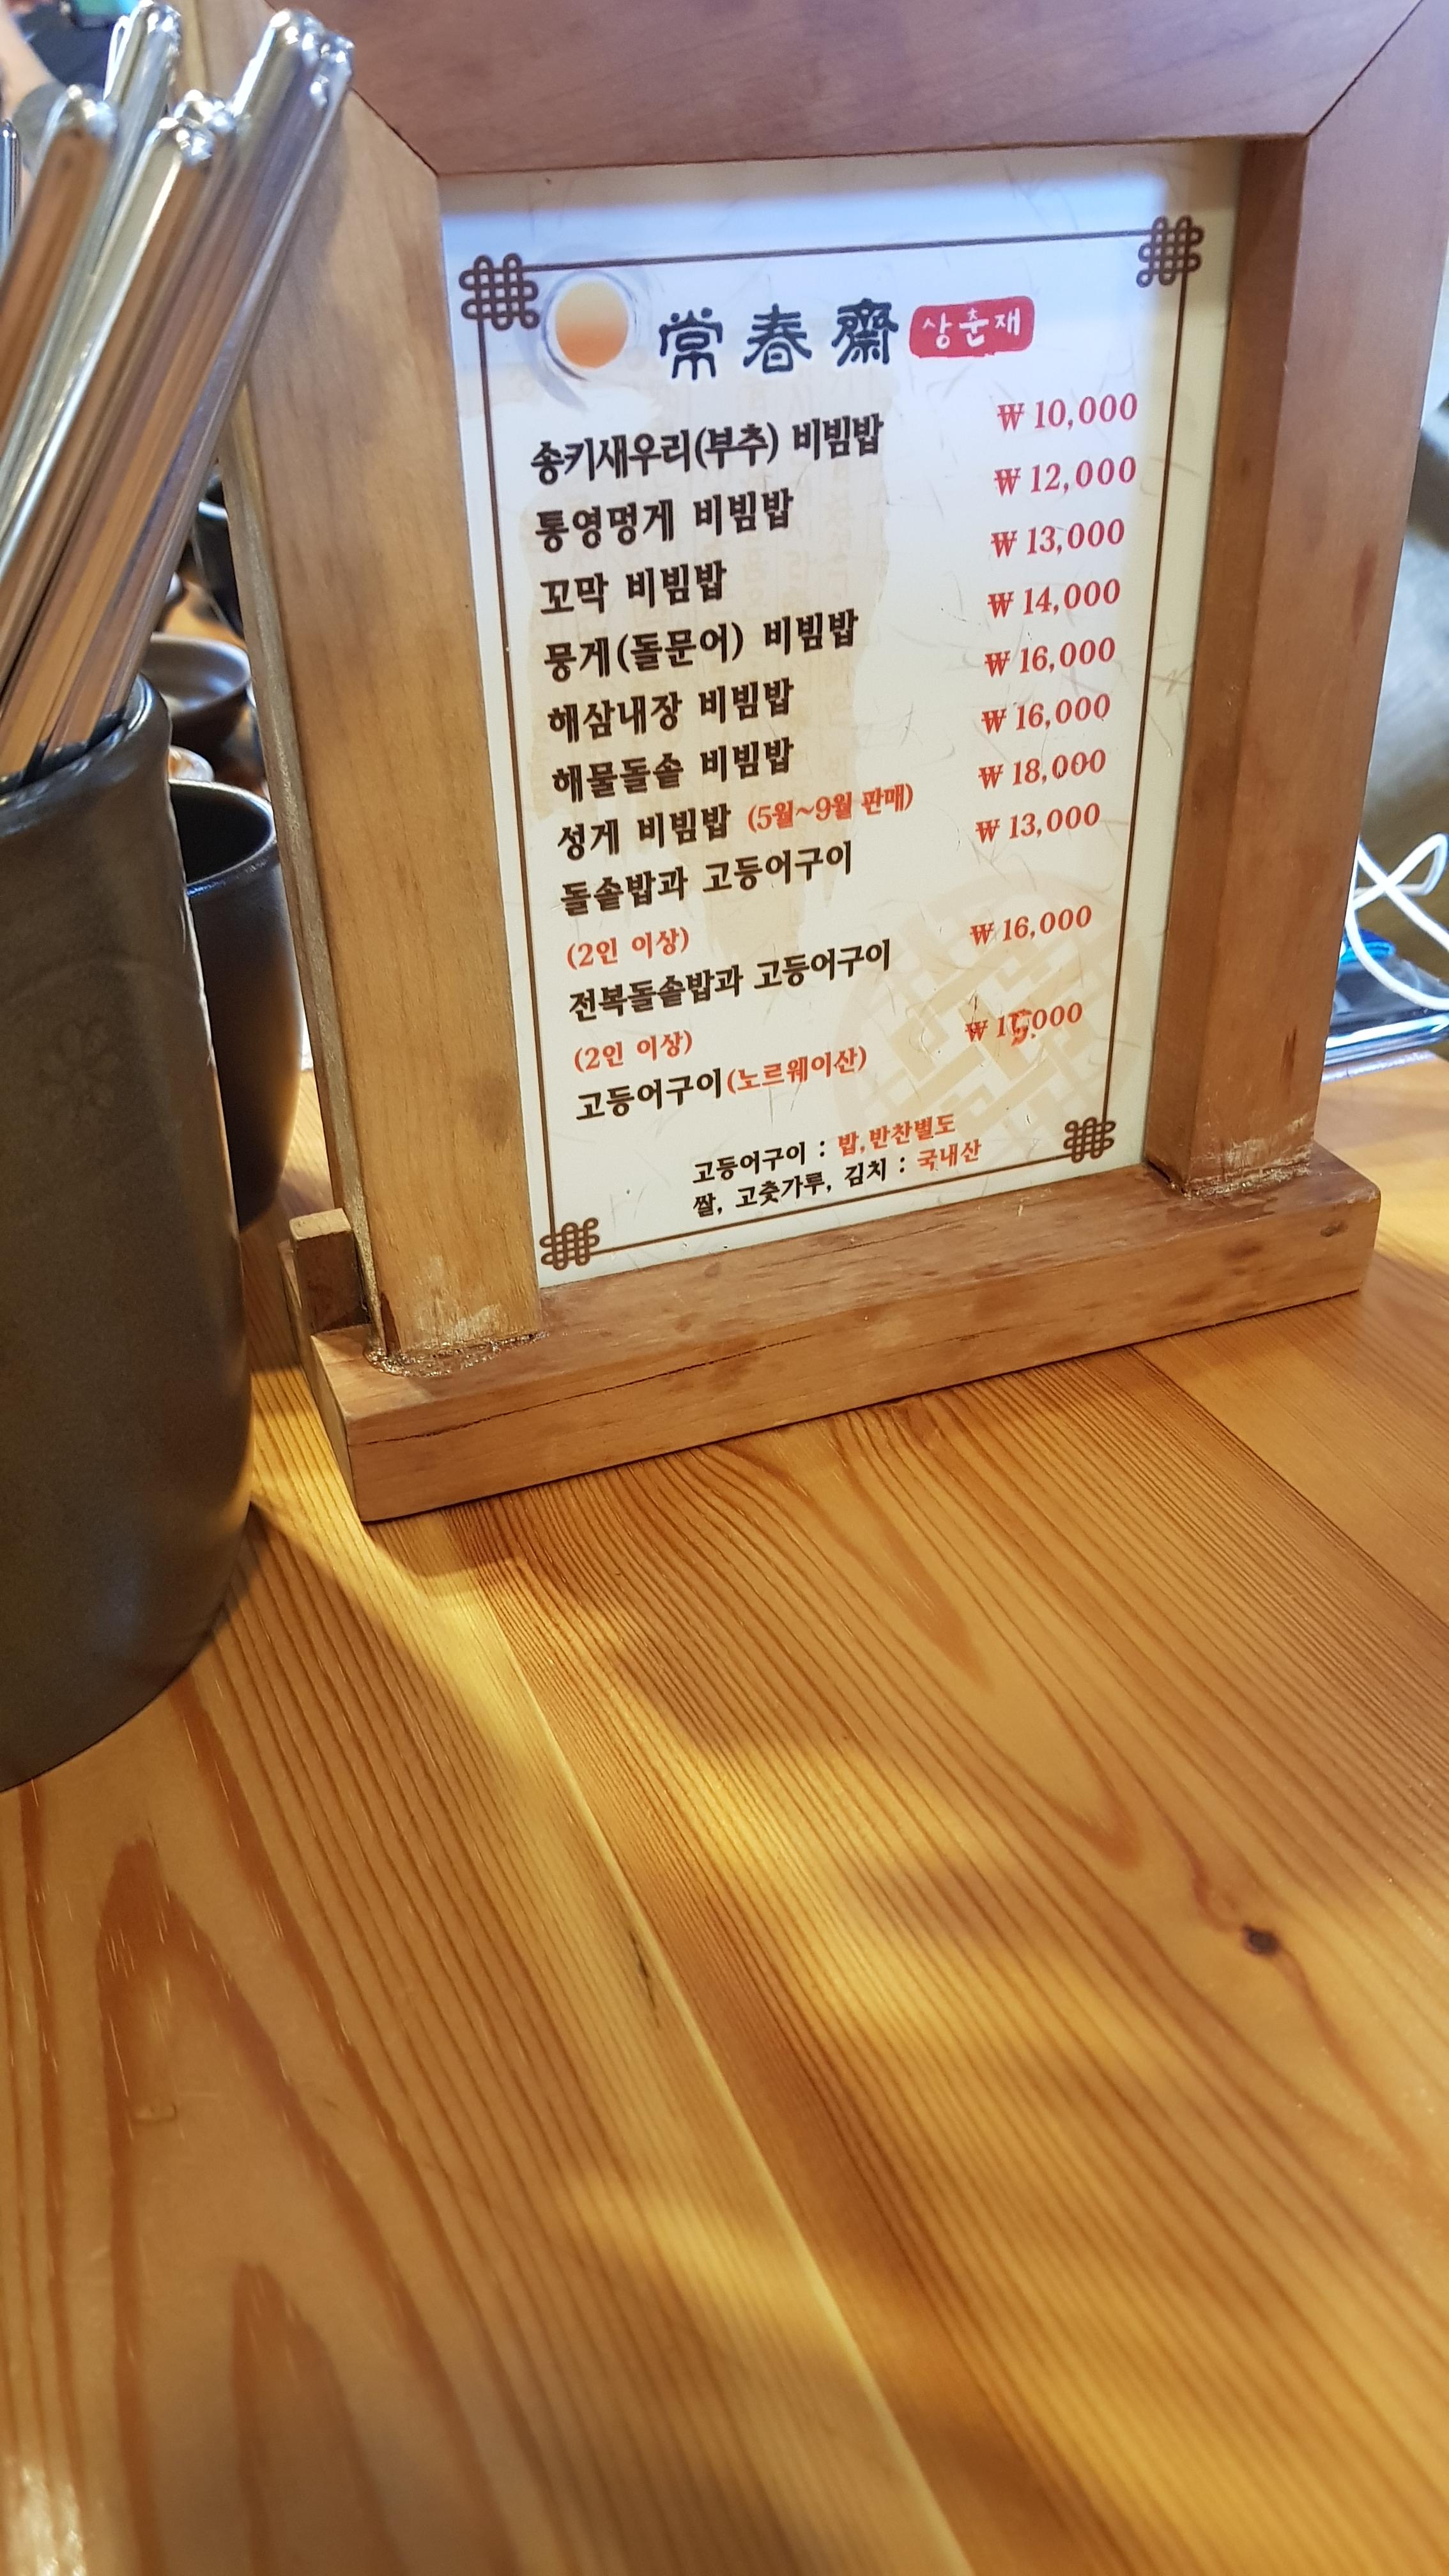 常春齋 상춘재
송키새우리(부추) 비빔밥 ₩ 10,000
통영멍게 비빔밥 ₩ 12,000
꼬막 비빔밥 ₩ 13,000
뭉게(돌문어) 비빔밥 ₩ 14,000
해삼내장 비빔밥 ₩ 16,000
해물돌솥 비빔밥 ₩ 16,000
성게 비빔밥 (5월~9월 판매) ₩ 18,000
돌솥밥과 고등어구이 ₩ 13,000
(2인 이상)
전복돌솥밥과 고등어구이 ₩ 16,000
(2인 이상)
고등어구이(노르웨이산) ₩
고등어구이 : 밥,반찬별도
쌀, 고춧가루, 김치 : 국내산